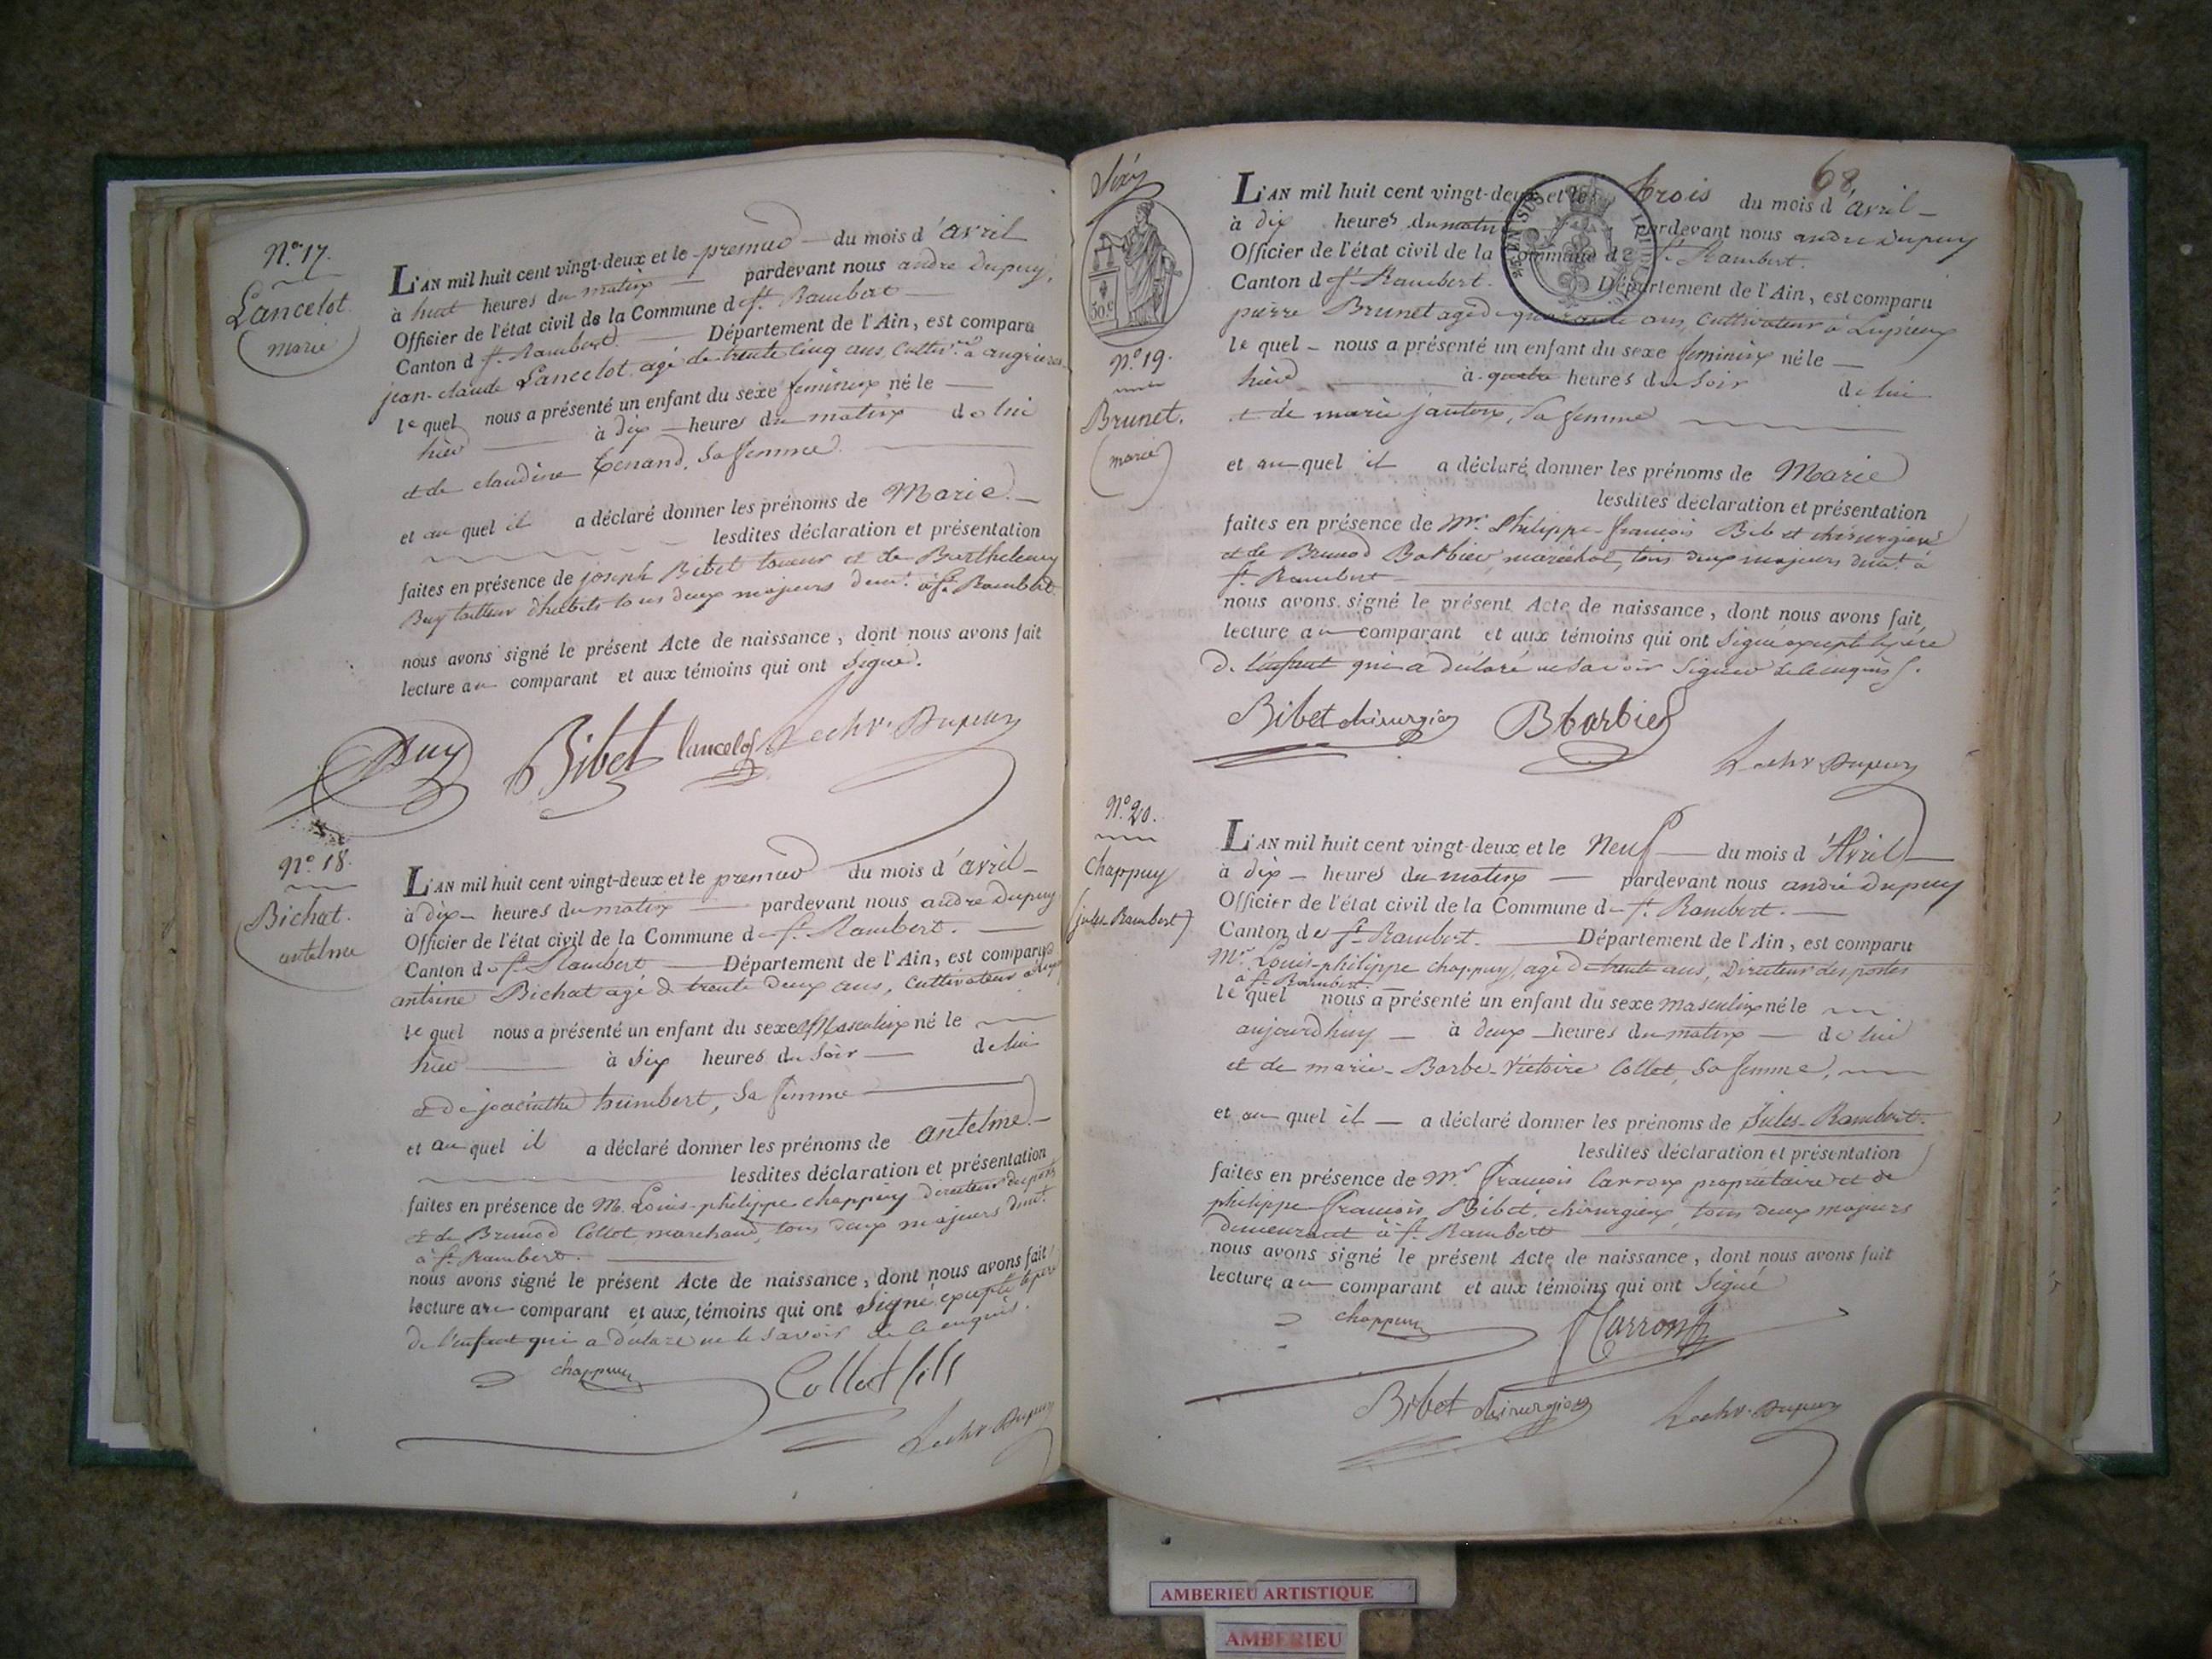 N.o 17.
Lancelot
(marie)
L'AN mil huit cent vingt-deux et le premier du mois d'avril
à huit heures du matin pardevant nous andré dupuy,
Officier de l'état civil de la Commune de St. Rambert
Canton de St. Rambert Département de l'Ain, est comparu
jean-claude Lancelot, agé de trente cinq ans, Cultiv.r à angrieres
lequel nous a présenté un enfant du sexe feminin né le
hier à dix heures du matin de lui
et de claudine tenand, sa femme
et auquel il a déclaré donner les prénoms de Marie
lesdites déclaration et présentation
faites en présence de joseph Bibet toueur et de Barthelemy
Buy tailleur d'habits tous deux majeurs dem.t à St. Rambert
nous avons signé le présent Acte de naissance, dont nous avons fait
lecture au comparant et aux témoins qui ont Signé.
Buy Bibet lancelot Dupuy
N.o 18.
Bichat.
antelme
L'AN mil huit cent vingt-deux et le premier du mois d'avril
à dix heures du matin pardevant nous andré Dupuy
Officier de l'état civil de la Commune de St. Rambert.
Canton de St. Rambert Département de l'Ain, est comparu
antoine Bichat agé de trente deux ans, Cultivateur
lequel nous a présenté un enfant du sexe Masculin né le
hier à Six heures du Soir de lui
et de jacinthe humbert, Sa femme
et auquel il a déclaré donner les prénoms de antelme
lesdites déclaration et présentation
faites en présence de M. Louis-philippe chappuy directeur des postes
et de Brunod Collet, marchand, tous deux majeurs dem.t
à St. Rambert.
nous avons signé le présent Acte de naissance, dont nous avons fait
lecture au comparant et aux témoins qui ont Signé excepté le père
de l'enfant qui a déclaré ne le savoir de ce enquis.
chappuy Collet fils
Dupuy
68
50.c
N.o 19.
Brunet.
(marie)
L'AN mil huit cent vingt-deux et le trois du mois d'avril
à dix heures du matin pardevant nous andré Dupuy
Officier de l'état civil de la Commune de St. Rambert.
Canton de St. Rambert. Département de l'Ain, est comparu
pierre Brunet agé de quarante ans, Cultivateur à Lupieux
lequel nous a présenté un enfant du sexe feminin né le
hier à quatre heures du Soir de lui
et de marie janton, Sa femme
et auquel il a déclaré donner les prénoms de Marie
lesdites déclaration et présentation
faites en présence de Mr. Philippe-françois Bibet chirurgien
et de Brunod Barbier, maréchal, tous deux majeurs dem.t à
St. Rambert
nous avons signé le présent Acte de naissance, dont nous avons fait
lecture au comparant et aux témoins qui ont Signé excepté le père
de l'enfant qui a déclaré ne Savoir Signer de ce enquis.
Bibet chirurgien B barbier
Dupuy
N.o 20.
Chappuy
(jules-Rambert)
L'AN mil huit cent vingt-deux et le Neuf du mois d'Avril
à dix heures du matin pardevant nous andré Dupuy
Officier de l'état civil de la Commune de St. Rambert.
Canton de St. Rambert. Département de l'Ain, est comparu
Mr. Louis-philippe chappuy, agé de trente ans, Directeur des postes
à St. Rambert
lequel nous a présenté un enfant du sexe masculin né le
aujourd'huy à deux heures du matin de lui
et de marie-Barbe-Victoire Collet, Sa femme,
et auquel il a déclaré donner les prénoms de Jules-Rambert.
lesdites déclaration et présentation
faites en présence de Mr. françois Carron propriétaire et de
philippe-françois Bibet, chirurgien, tous deux majeurs
demeurant à St. Rambert
nous avons signé le présent Acte de naissance, dont nous avons fait
lecture au comparant et aux témoins qui ont Signé
chappuy Carron
Bibet chirurgien Dupuy
AMBERIEU ARTISTIQUE
AMBERIEU